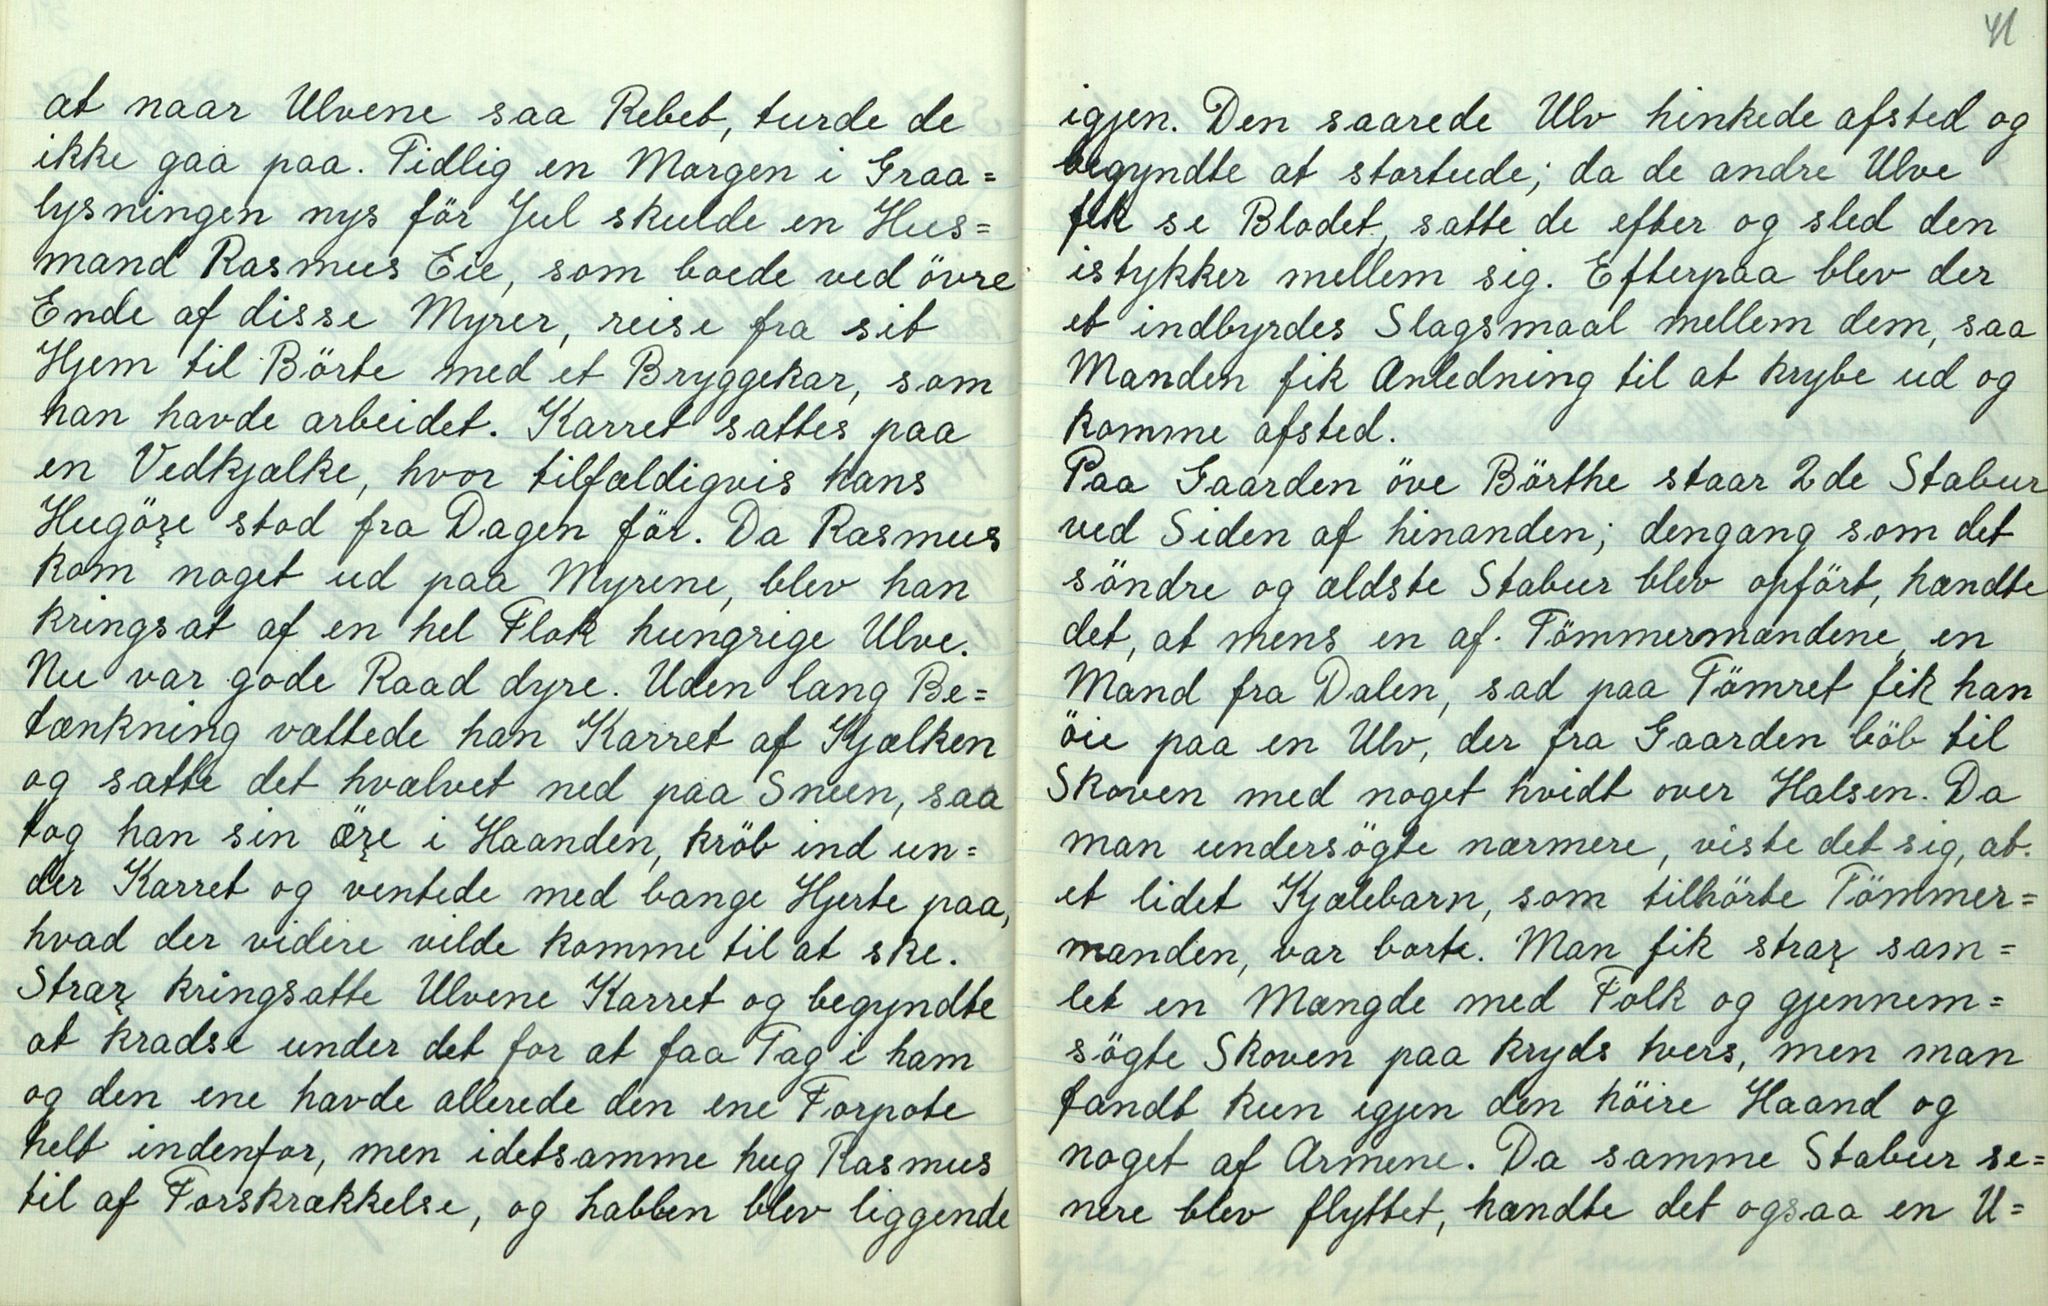 at naar Ulvene saa Rebet, turde de
ikke gaa paa. Tidlig en Morgen i Graa=
lysningen nys för Jul skulde en Hus=
mand Rasmus Eie, som boede ved övre
Ende af disse Myrer, reise fra sit
Hjem til Börte med et Bryggekar, som
han havde arbeidet. Karret sattes paa
en Vedkjælke, hvor tilfældigvis hans
Hugöxe stod fra Dagen för. Da Rasmus
kom noget ud paa Myrene, blev han
kringsat af en hel Flok hungrige Ulve.
Nu var gode Raad dyre. Uden lang Be=
tænkning væltede han Karret af Kjælken
og satte det hvælvet ned paa Sneen, saa
tog han sin öxe i Haanden, kröb ind un=
der Karret og ventede med bange Hjerte paa,
hvad der videre vilde komme til at ske.
Strax kringsatte Ulvene Karret og begyndte
at kradse under det for at faa Tag i ham
og den ene havde allerede den ene Forpote
helt indenfor, men idetsamme hug Rasmus
til af Forskrækkelse, og labben blev liggende
41
igjen. Den saarede Ulv hinkede afsted og
begyndte at stortude; da de andre Ulve
fik se Blodet, satte de efter og sled den
istykker mellem sig. Efterpaa blev der
et indbyrdes Slagsmaal mellem dem, saa
Manden fik Anledning til at krybe ud og
komme afsted.
Paa Gaarden öve Börthe staar 2de Stabur
ved Siden af hinanden; dengang som det
söndre og ældste Stabur blev opfört, hændte
det, at mens en af Tömmermændene, en
Mand fra Dalen, sad paa Tömret fik han
öie paa en Ulv, der fra Gaarden löb til
Skoven med noget hvidt over Halsen. Da
man undersögte nærmere, viste det sig, at
et lidet Kjælebarn, som tilhörte Tömmer=
manden, var borte. Man fik strax sam=
let en Mængde med Folk og gjennem=
sögte Skoven paa kryds tvers, men man
fandt kun igjen den höire Haand og
noget af Armene. Da samme Stabur se=
nere blev flyttet, hændte det ogsaa en U=